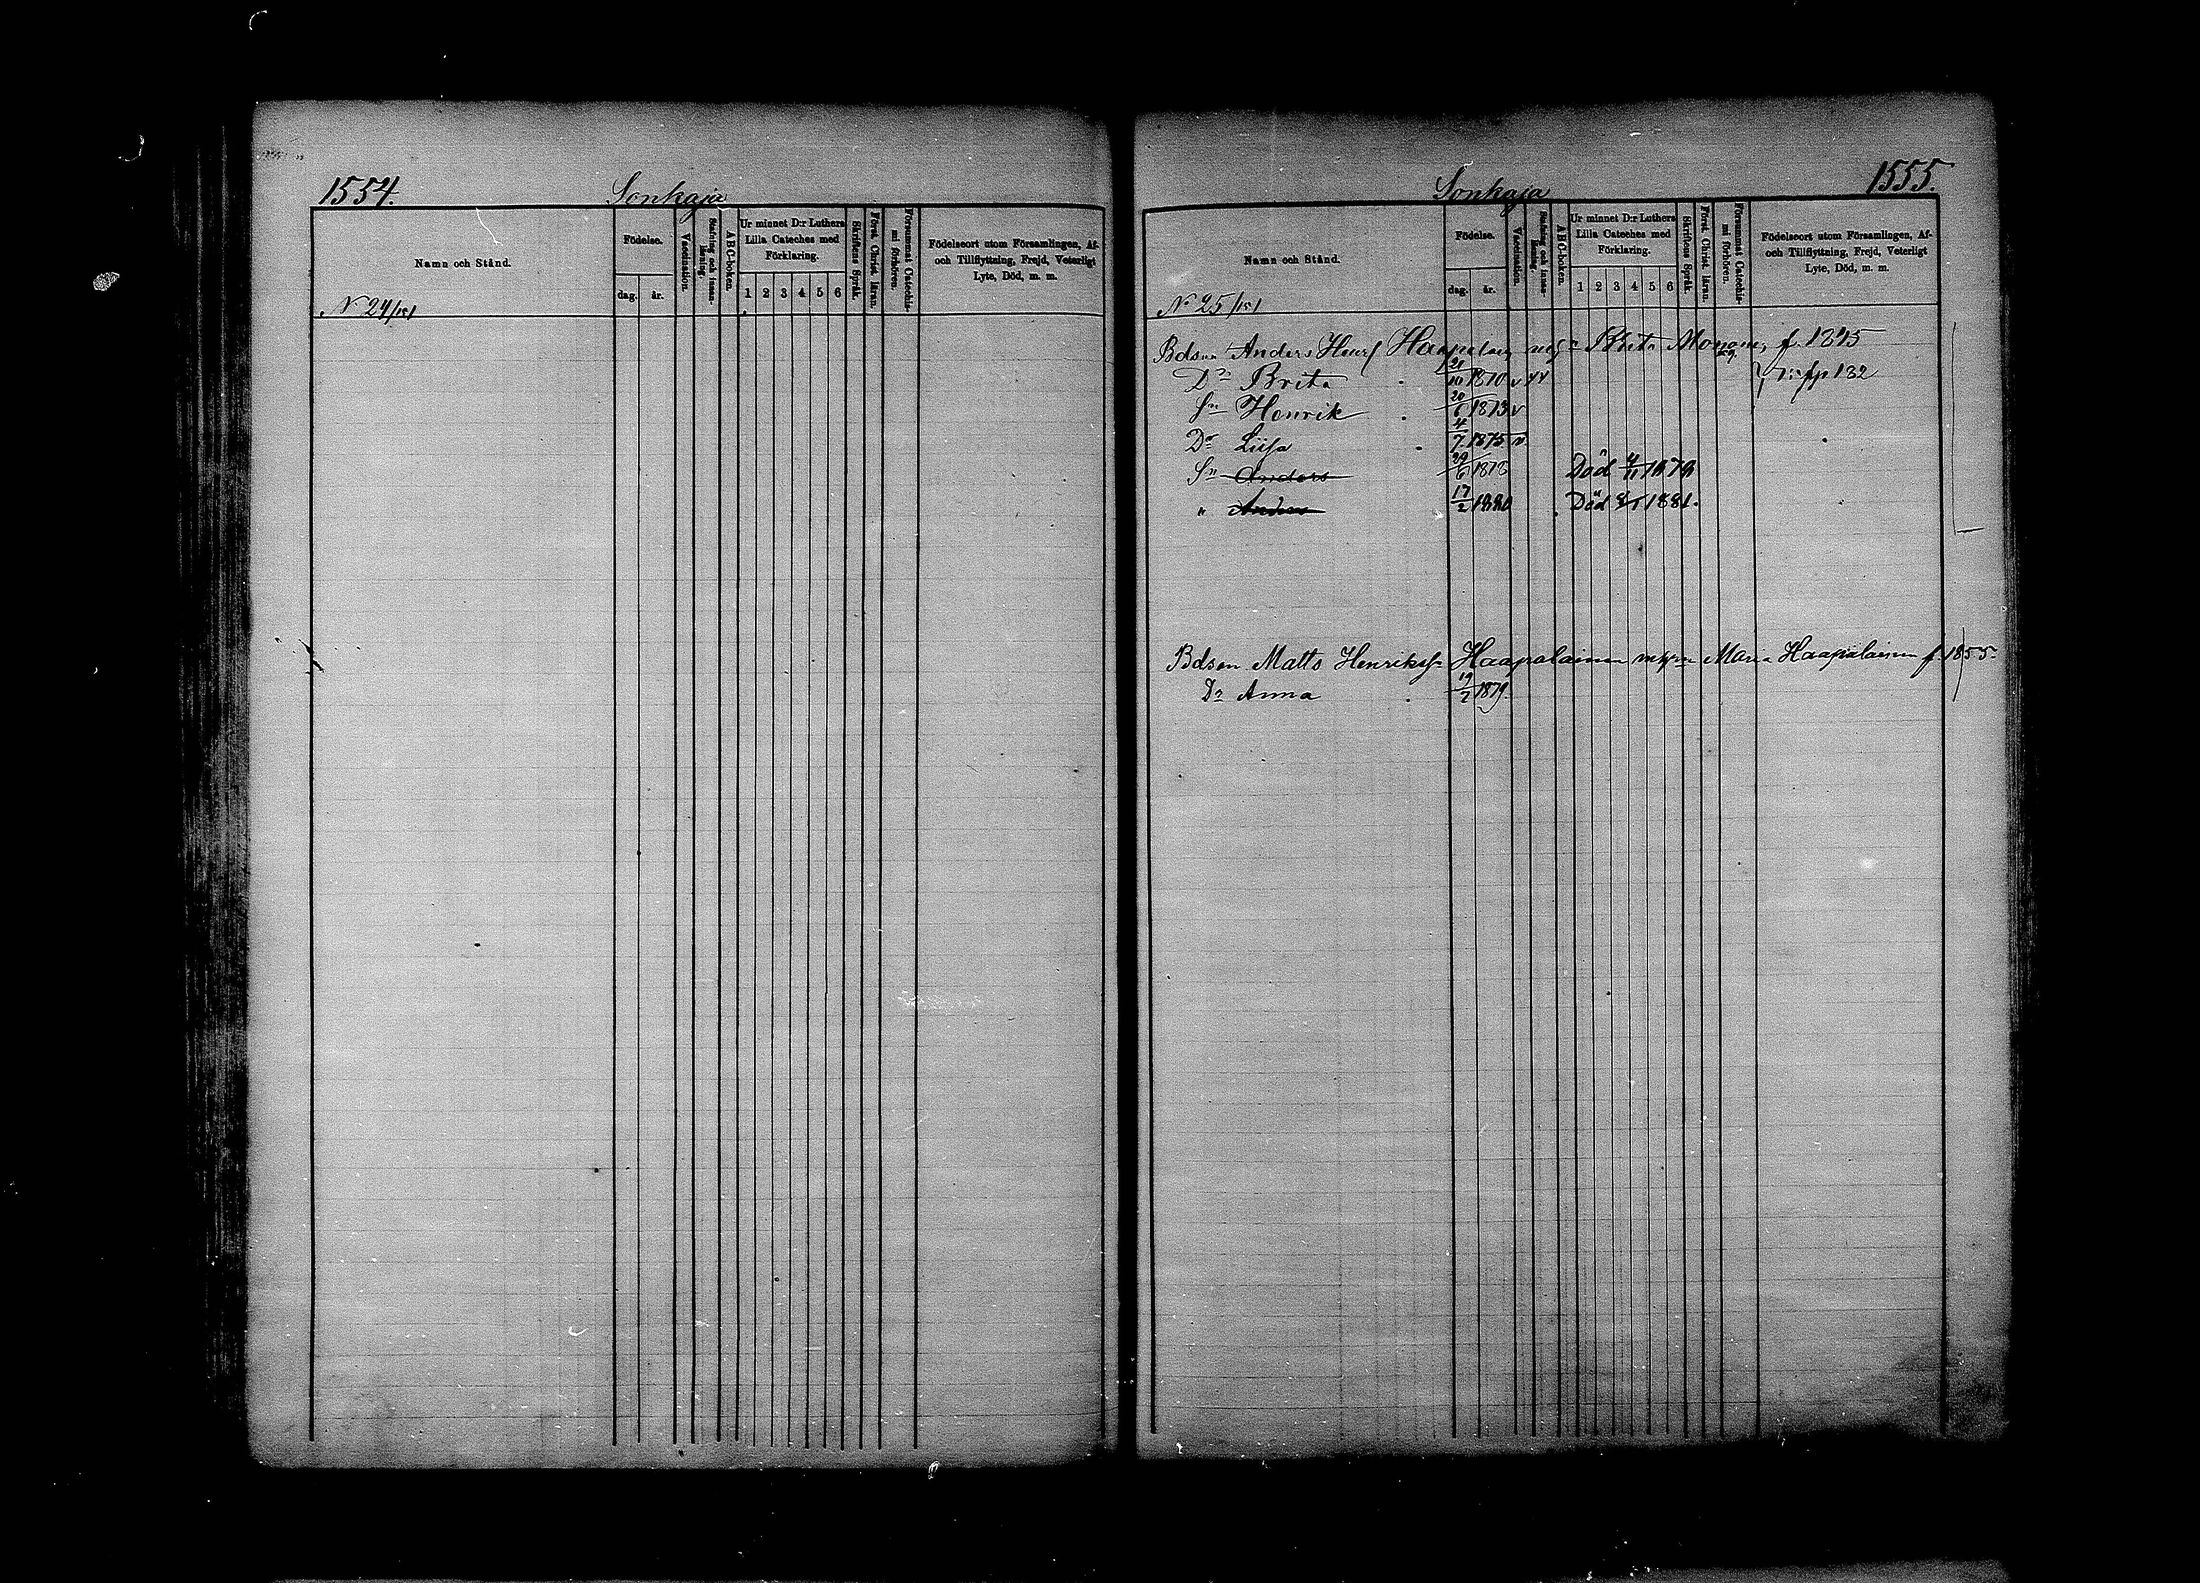 1554.
Sonkaja
Namn och Stånd.
Födelse.
dag. år.
Vaccination.
Stafning och innanläsning.
A B C-boken.
Ur minnet D:r Luthers Lilla Cateches med Förklaring.
1 2 3 4 5 6
Skriftens Språk.
Först. Christ. läran.
Försummat Catechismi förhören.
Födelseort utom Församlingen, Af- och Tillflyttning, Frejd, Veterligt Lyte, Död, m. m.
N 24/151
1555.
Sonkaja
Namn och Stånd.
Födelse.
dag. år.
Vaccination.
Stafning och innanläsning.
A B C-boken.
Ur minnet D:r Luthers Lilla Cateches med Förklaring.
1 2 3 4 5 6
Skriftens Språk.
Först. Christ. läran.
Försummat Catechismi förhören.
Födelseort utom Församlingen, Af- och Tillflyttning, Frejd, Veterligt Lyte, Död, m. m.
N 25/151
Anders Haapalain Brita f. 1845
Dr Brita 21/10 1870 v p 132
Sn Henrik 20/6 1873 v
Dr Liisa 4/7 1875 v
Sn Anders 29/6 1878 Död 4/11 1879
" Anders 17/2 1880 Död 1881.
Bdsen Matts Henrikss Haapalainen Maria Haapalainen f. 1855
Dr Anna 19/2 1879.